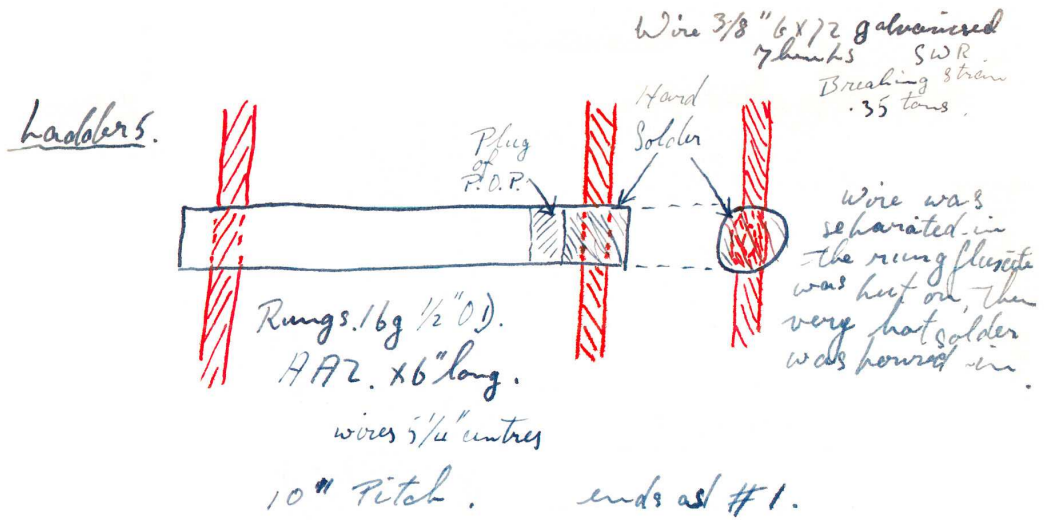 Wire 3/8" 6 x 72 galvanised
SWR
Breaking Strain
.35 tons.
Ladders.
Hard
Solder
Plug
of
P.O.P.
wire was
separated in
the rung fluxite
was put on, then
very hot solder
was poured in.
Rungs. 16g 1/2" O.D.
x 6" long.
wires 5 1/4" centres
10" Pitch. ends as #1.